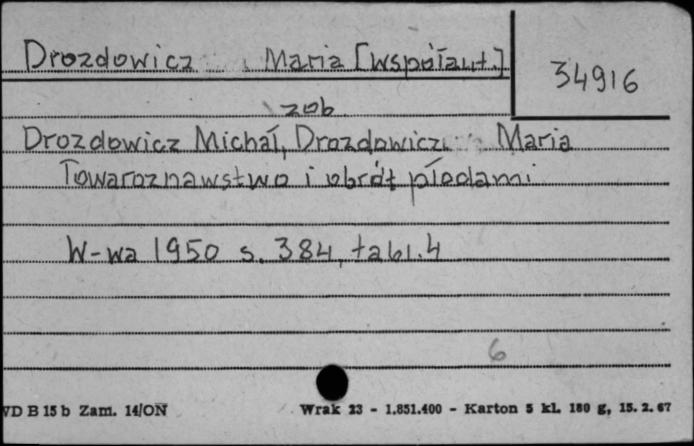 Drozdowicz Maria [współaut.]
34916
zob
Drozdowicz Michał, Drozdowicz Maria
Towaroznawstwo i obrót płodami
W-wa 1950 s. 384, tabl. 4
6
VD B 15 b Zam. 14/ON Wrak 23 - 1.851.400 - Karton 5 kl. 180 g, 15. 2. 67